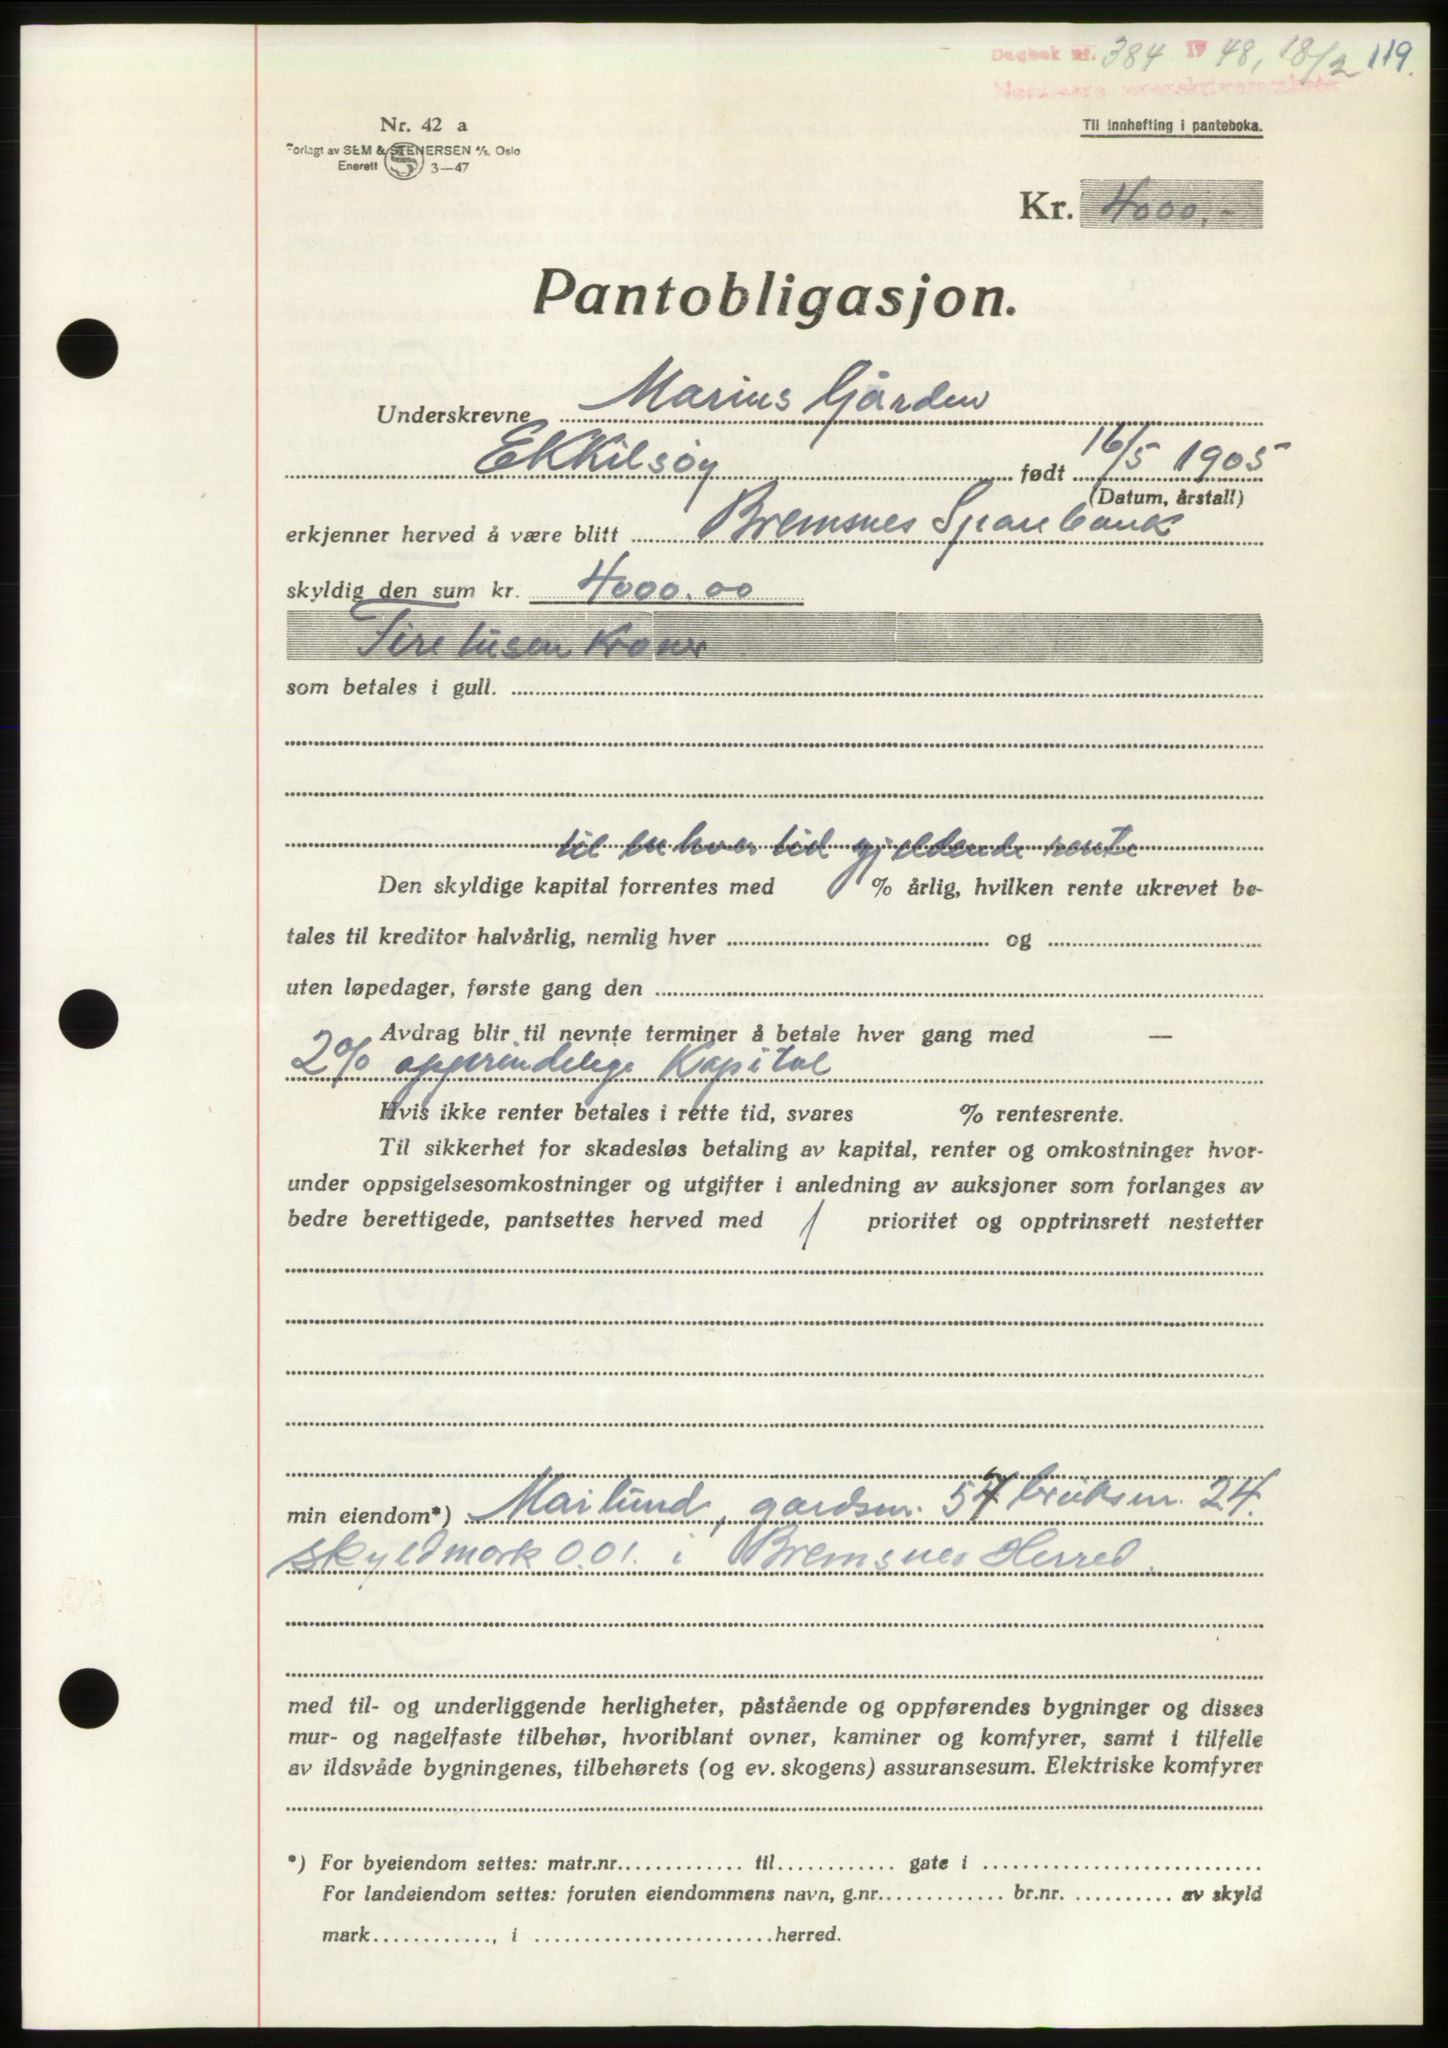 Dagbok nr. 384 19 48, 18/2 119.
Nordmøre sorenskriverembete
Nr. 42 a
Til innhefting i panteboka.
Forlagt av SEM & STENERSEN A/S, Oslo
Enerett S 3—47
Kr. 4000.-
Pantobligasjon.
Underskrevne Marius Gjården
Ekkilsøy født 16/5 1905
(Datum, årstall)
erkjenner herved å være blitt Bremsnes Sparebank
skyldig den sum kr. 4000.00
Fire tusen Kroner
som betales i gull.
til en hver tid gjeldende rente
Den skyldige kapital forrentes med % årlig, hvilken rente ukrevet be-
tales til kreditor halvårlig, nemlig hver og
uten løpedager, første gang den
Avdrag blir til nevnte terminer å betale hver gang med —
2% opprindelige Kapital
Hvis ikke renter betales i rette tid, svares % rentesrente.
Til sikkerhet for skadesløs betaling av kapital, renter og omkostninger hvor-
under oppsigelsesomkostninger og utgifter i anledning av auksjoner som forlanges av
bedre berettigede, pantsettes herved med 1 prioritet og opptrinsrett nestetter
min eiendom*) Mailund, gardsnr. 57 bruksnr. 24.
skyldmark 0.01. i Bremsnes Herred.
med til- og underliggende herligheter, påstående og oppførendes bygninger og disses
mur- og nagelfaste tilbehør, hvoriblant ovner, kaminer og komfyrer, samt i tilfelle
av ildsvåde bygningenes, tilbehørets (og ev. skogens) assuransesum. Elektriske komfyrer
*) For byeiendom settes: matr.nr. til gate i
For landeiendom settes: foruten eiendommens navn, g.nr. br.nr. av skyld
mark , i herred.